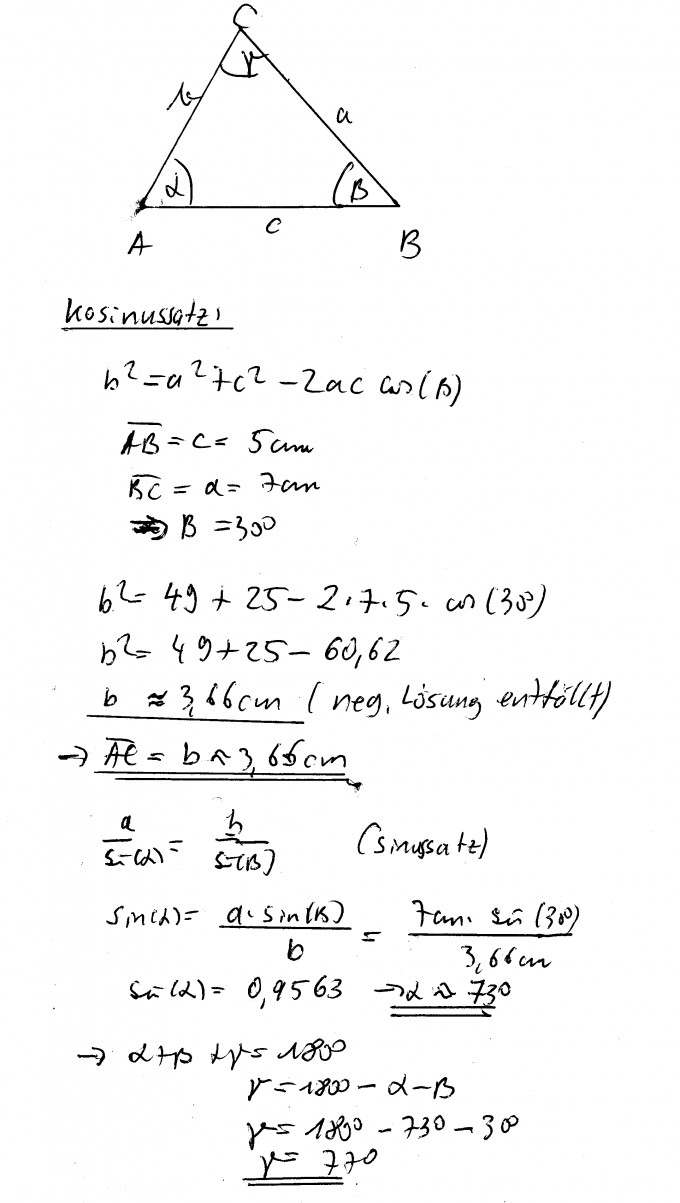 C
γ
b
a
α
β
A
c
B
Kosinussatz:
b² = a² + c² - 2ac cos(β)
A̅B̅ = c = 5cm
B̅C̅ = a = 7cm
⇒ β = 30°
b² = 49 + 25 - 2·7·5· cos(30°)
b² = 49 + 25 - 60,62
b ≈ 3,66cm (neg. Lösung entfällt)
→ A̅C̅ = b ≈ 3,66cm
a/sin(α) = b/sin(β) (Sinussatz)
sin(α) = a·sin(β)/b = 7cm·sin(30°)/3,66cm
sin(α) = 0,9563 → α ≈ 73°
→ α + β + γ = 180°
γ = 180° - α - β
γ = 180° - 73° - 30°
γ = 77°